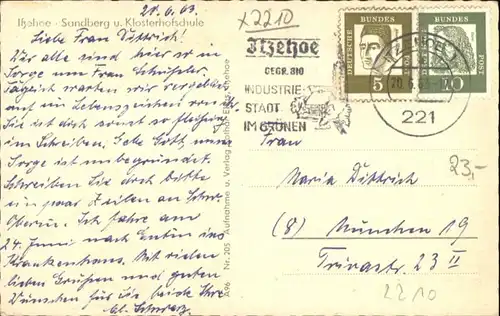 Itzehoe - Sandberg u. Klosterhofschule
20.6.63
Liebe Frau Dittrich!
Wir alle sind hier so in
Sorge um Frau Schüssler.
Täglich warten wir vergeblich
auf ein Lebenszeichen von ihr
Sie ist doch sonst so fleissig
im Schreiben. Gebe Gott, unsere
Sorge ist unbegründet.
Schreiben Sie doch bitte
ein paar Zeilen an Schw.
Oberin. Ich fahre am
24. Juni nach Eutin ins
Krankenhaus. Mit vielen
lieben Grüßen und guten
Wünschen für Sie beide Ihre
A96 Nr. 205 Aufnahme u. Verlag Itzehoe
x2210
Itzehoe
GEGR. 810
INDUSTRIE
STADT
IM GRÜNEN
DEUTSCHE BUNDESPOST
5
DEUTSCHE BUNDESPOST
10
ITZEHOE
20.6.63
221
23,-
Frau
Maria Dittrich
(8) München 19
Trivastr. 23 II
2210